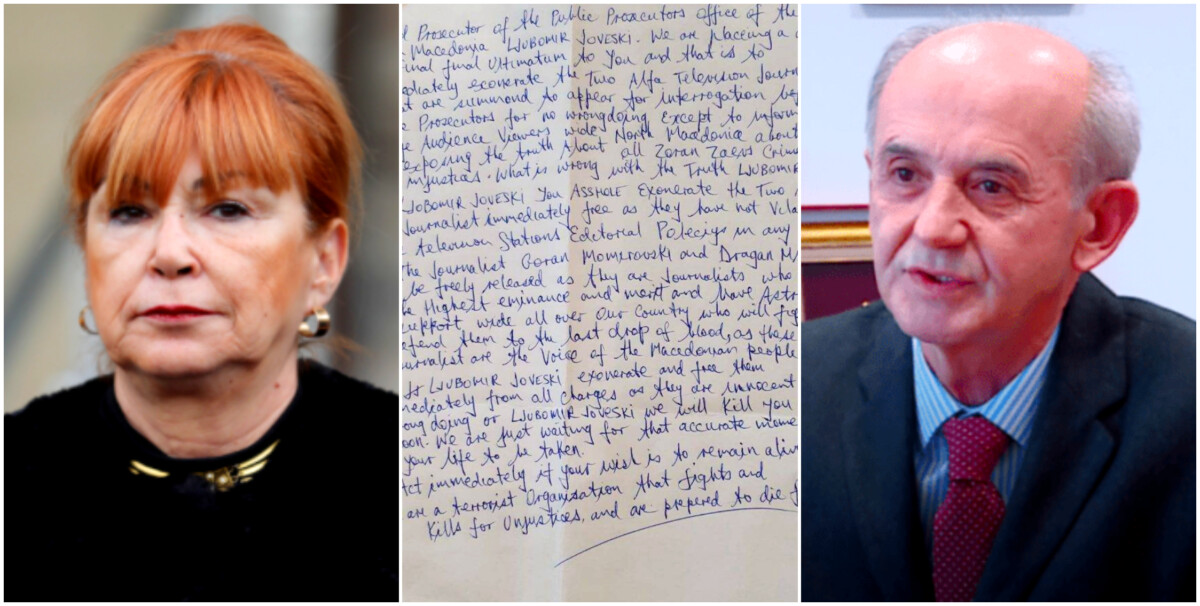 l Prosecutor of the Public Prozecutors office of the
Macedonia LJUBOMIR JOVESKI. We are placeing a
final final Ultimatum to You and that is to
ediately exonerate the Two Alfa Television Journ
t are summond to appear for interrogation be
e Prozecutors for no wrongdoing Except to inform
e Audience Viewers wide North Macedonia about
exposing the truth About all Zoran Zaevs Crim
injustices. What is wrong with the Truth LJUBOMIR
LJUBOMIR JOVESKI You ASSHOLE Exonerate the Two
Journalist immediately free as they have not
television Stations Editorial in any
the Journalist Goran Momerovski and Dragan M
be freely released as they are Journalists who
e Highest eminance and merit and have Astr
upport wide all over Our Country who will fig
efend them to the last drop of blood, as these
urnalist are the Voice of the Macedonian people
LJUBOMIR JOVESKI exonerate and free them
mediately from all charges as they are innocent
ongdoing or LJUBOMIR JOVESKI we will Kill You
oon. We are just waiting for that accurate mome
your life to be taken.
ct immediately if your wish is to remain aliv
are a terrorist Organisation that fights and
Kills for Unjustices, and are prepered to die f